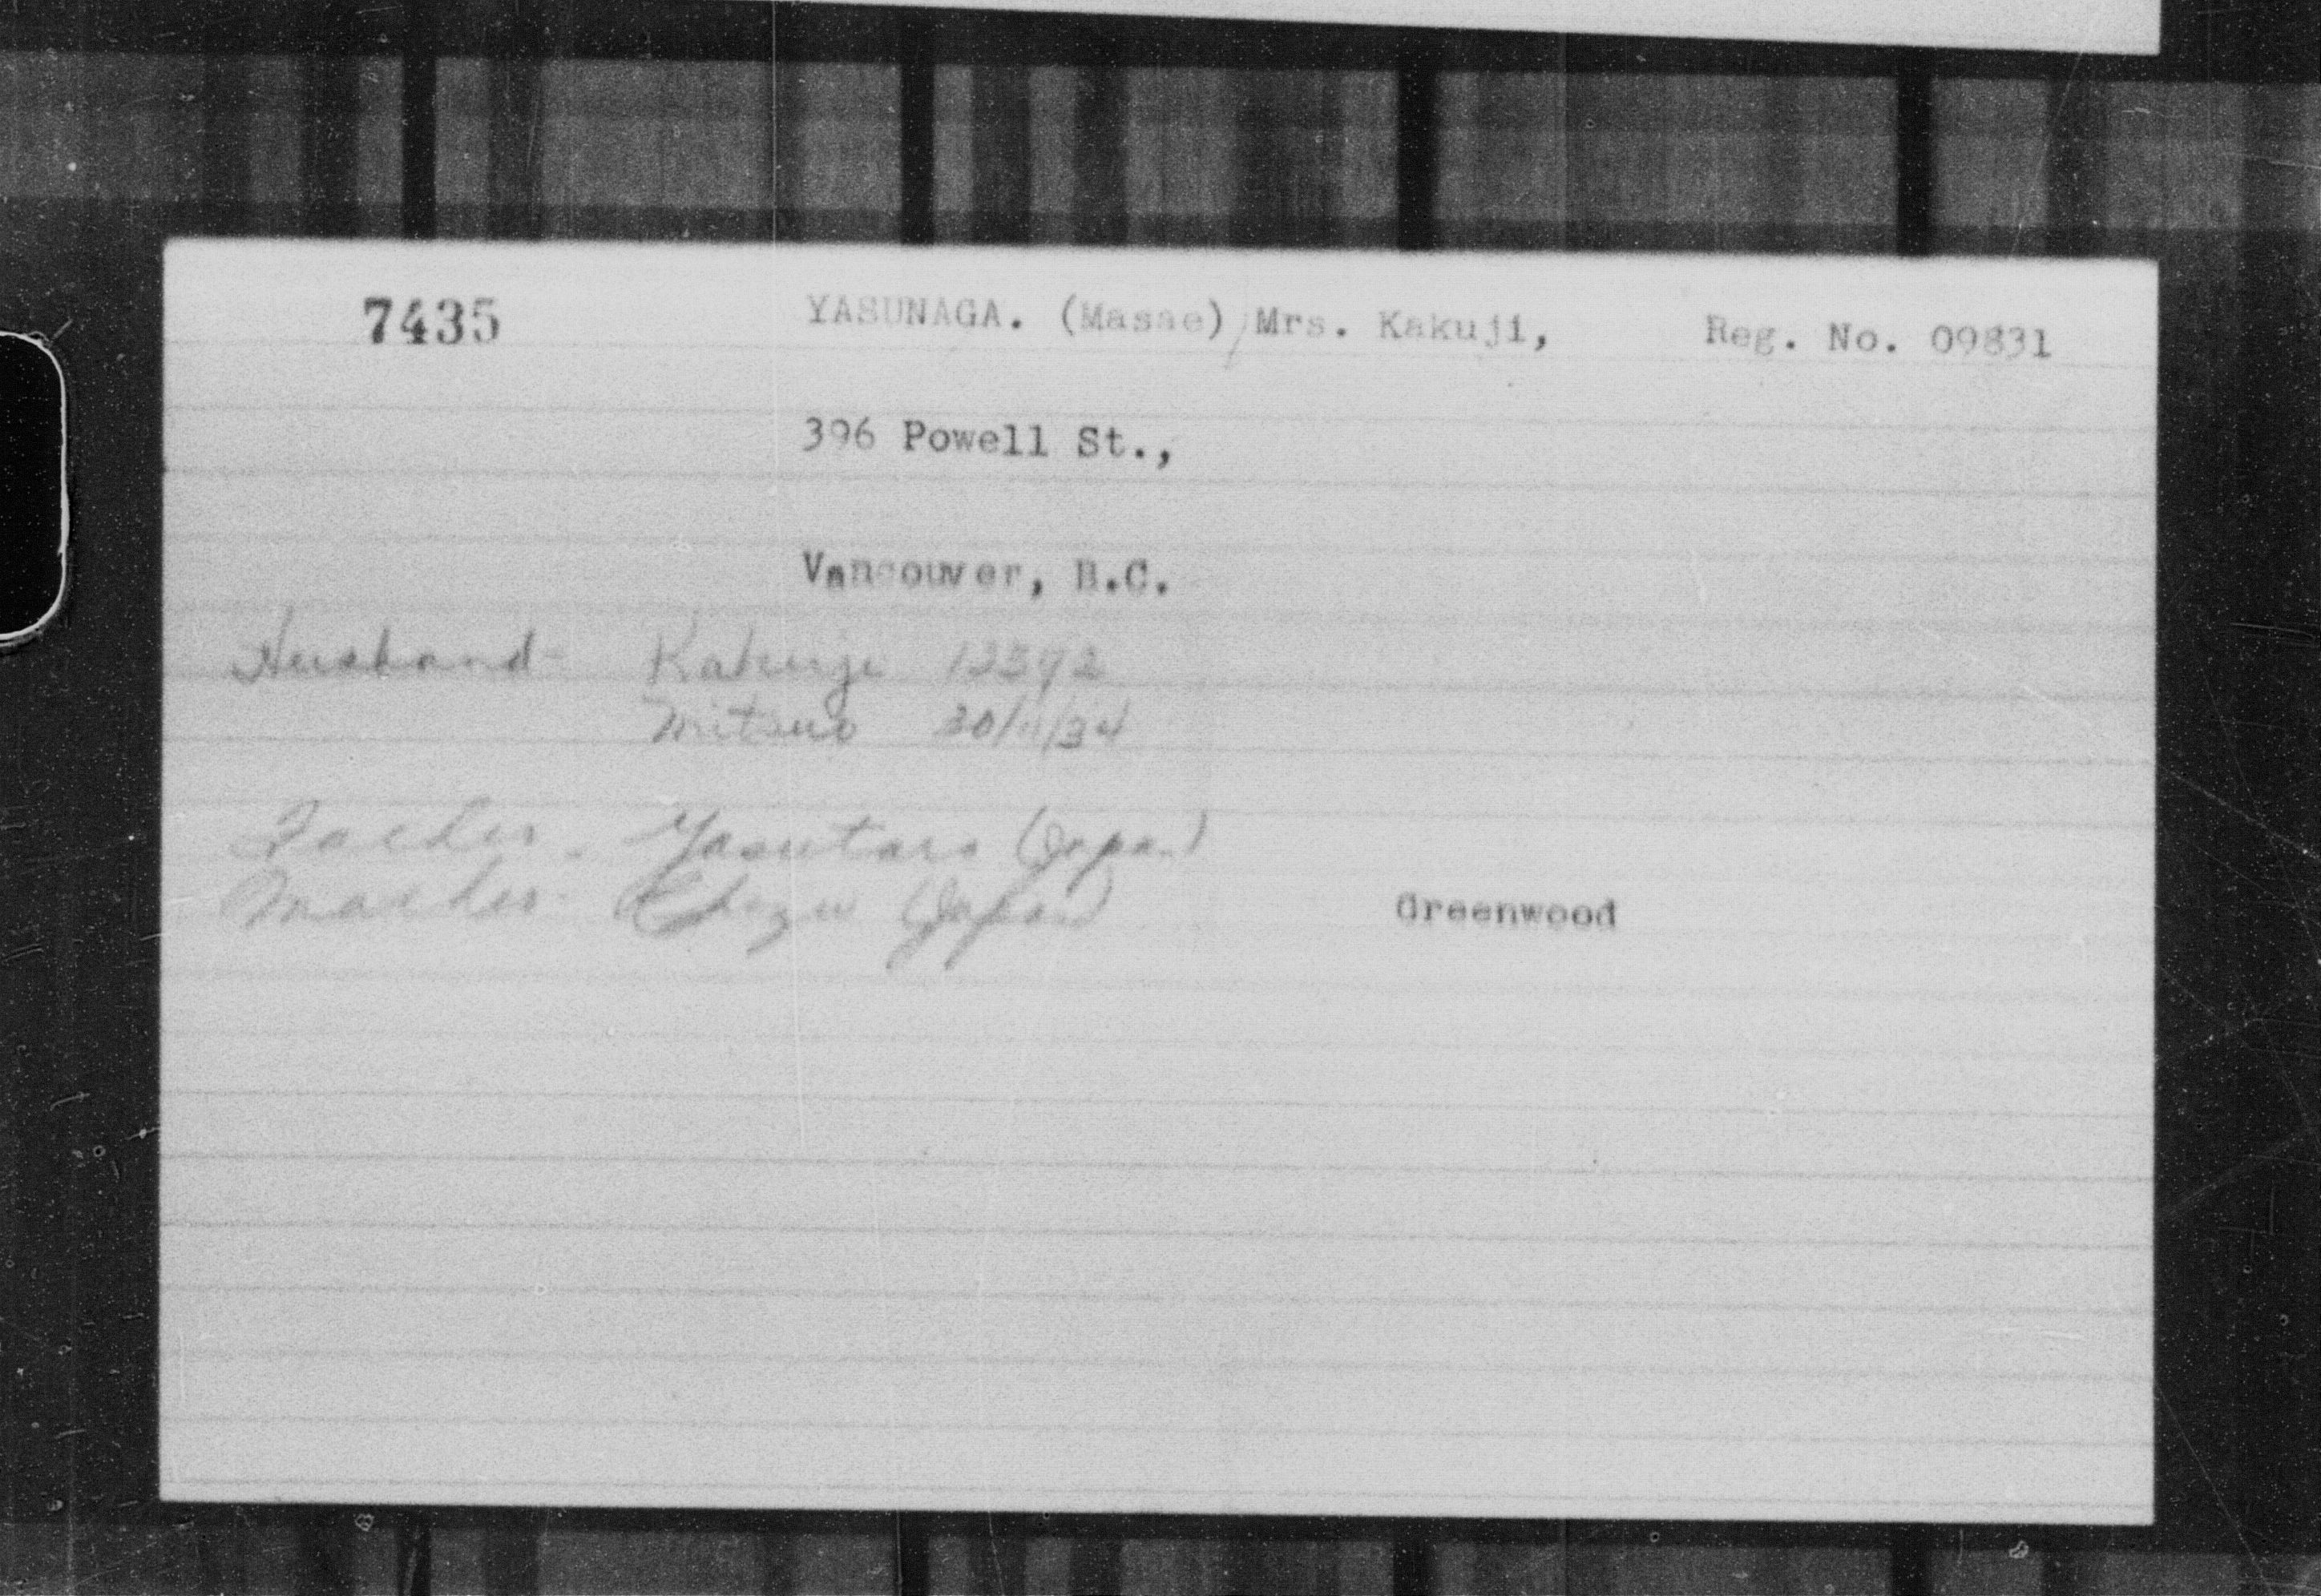 7435 YASUNAGA. (Masae) Mrs. Kakuji, Reg. No. 09831
396 Powell St.,
Vancouver, B.C.
Husband - Kakuji 12592
Mitsuo 30/11/34
Father - Yasutaro (Japan)
Mother - (Japan)
Greenwood